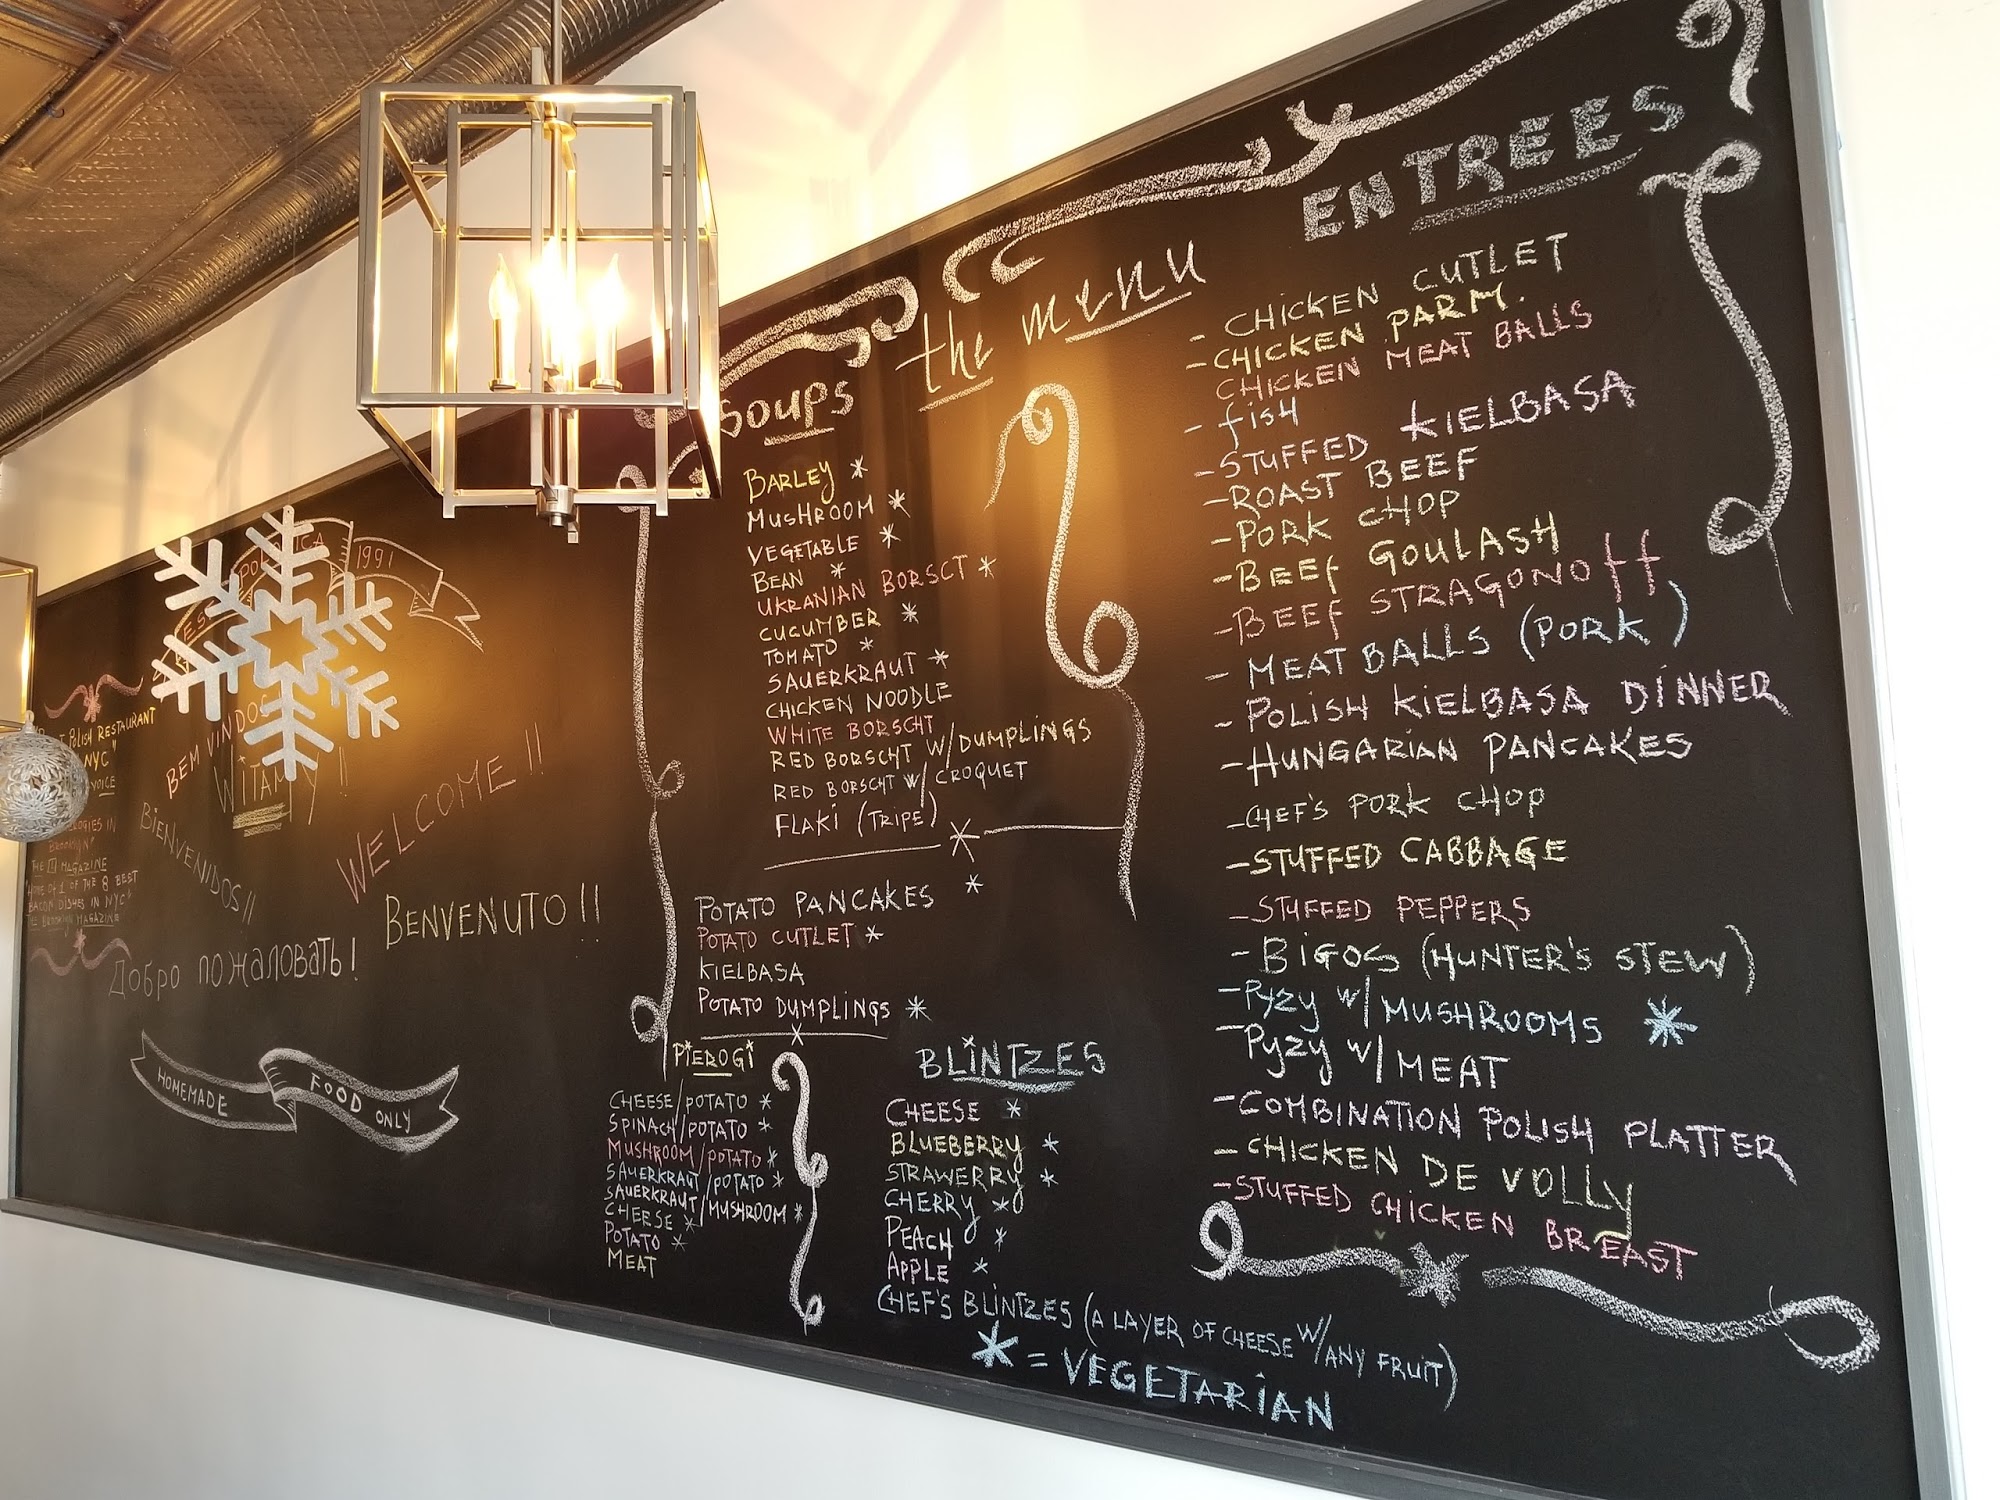 1991
POLISH RESTAURANT
NYC"
VOICE
BROOKLYN"
THE MAGAZINE
OF THE 8 BEST
BACON DISHES IN NYC"
THE BROOKLYN MAGAZINE
BEM VINDOS
WITAMY!!
WELCOME!!
BIENVENIDOS!!
BENVENUTO!!
Добро пожаловать!
HOMEMADE FOOD ONLY
the menu
Soups
BARLEY *
MUSHROOM *
VEGETABLE *
BEAN *
UKRANIAN BORSCT *
CUCUMBER *
TOMATO *
SAUERKRAUT *
CHICKEN NOODLE
WHITE BORSCHT
RED BORSCHT W/DUMPLINGS
RED BORSCHT W/CROQUET
FLAKI (TRIPE)
POTATO PANCAKES *
POTATO CUTLET *
KIELBASA
POTATO DUMPLINGS *
PIEROGI
CHEESE/POTATO *
SPINACH/POTATO *
MUSHROOM/POTATO *
SAUERKRAUT/POTATO *
SAUERKRAUT/MUSHROOM *
CHEESE *
POTATO *
MEAT
BLINTZES
CHEESE *
BLUEBERRY *
STRAWERRY *
CHERRY *
PEACH *
APPLE *
CHEF'S BLINTZES (A LAYER OF CHEESE W/ANY FRUIT)
* = VEGETARIAN
ENTREES
- CHICKEN CUTLET
- CHICKEN PARM.
CHICKEN MEAT BALLS
- fish
- STUFFED KIELBASA
- ROAST BEEF
- PORK CHOP
- BEEF GOULASH
- BEEF STRAGONOff
- MEAT BALLS (PORK)
- POLISH KIELBASA DINNER
- HUNGARIAN PANCAKES
- CHEF'S PORK CHOP
- STUFFED CABBAGE
- STUFFED PEPPERS
- BIGOS (HUNTER'S STEW)
- PYZY W/MUSHROOMS *
- PYZY W/MEAT
- COMBINATION POLISH PLATTER
- CHICKEN DE VOLLY
- STUFFED CHICKEN BREAST